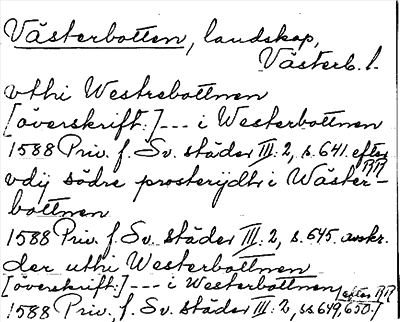 Västerbotten, landskap,
Västerb. l.
vthi Westrebottnen
[överskrift:] --- i Westerbottnen
1588 Priv. f. Sv. städer III: 2, s. 641. efter RR
vdij södre prosterijdt i Wäster-
bottnen
1588 Priv. f. Sv. städer III: 2, s. 645. avskr.
der uthi Westerbottnen
[överskrift:] --- i Westerbottnen [efter RR
1588 Priv. f. Sv. städer III: 2, ss 649, 650.]